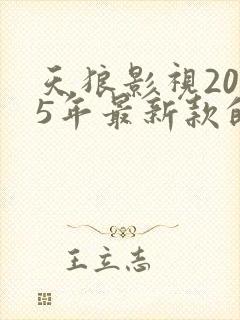 天狼影視20
5年最新款的
王立志